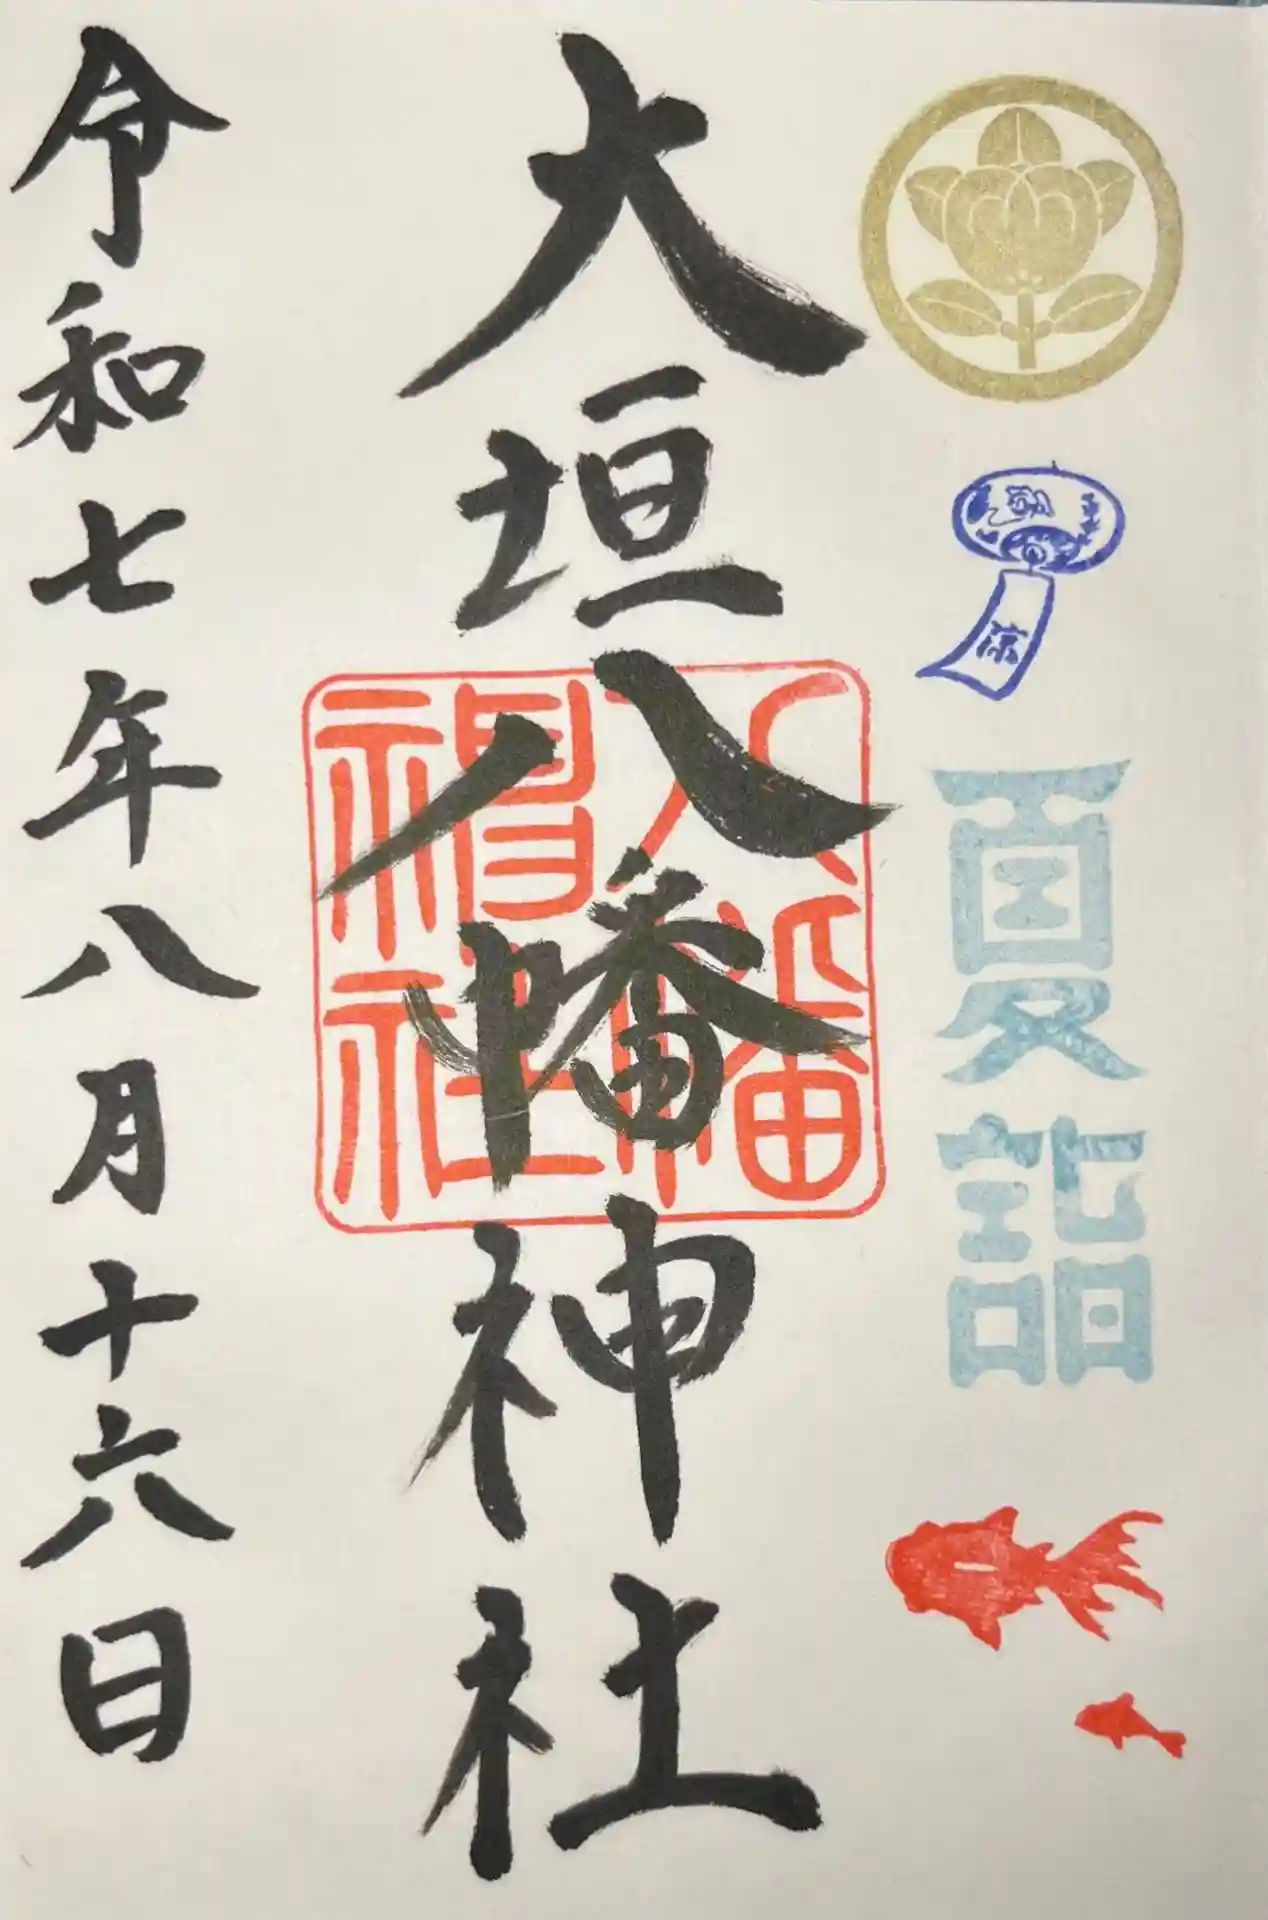 涼
夏詣
大垣八幡神社
八幡
神社
令和七年八月十六日